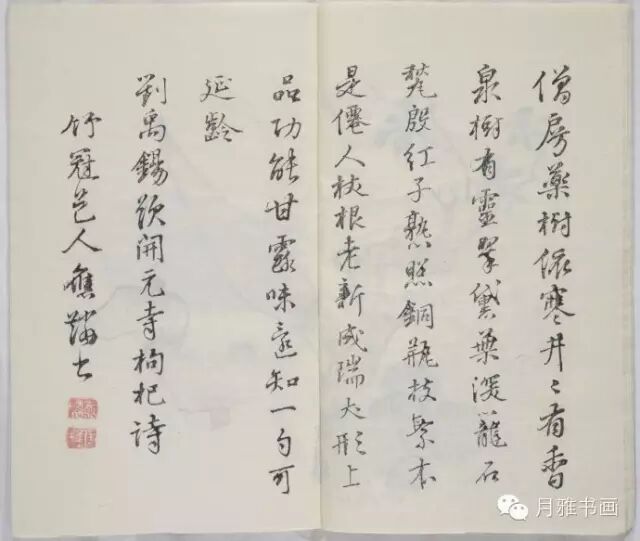 僧房藥樹依寒井〻有香
泉樹有靈翠黛葉深籠石
甃殷紅子熟照銅瓶枝繁本
是僊人杖根老新成瑞犬形上
品功能甘露味還知一勺可
延齡
劉禹錫詠開元寺枸杞詩
竹冠人
月雅书画